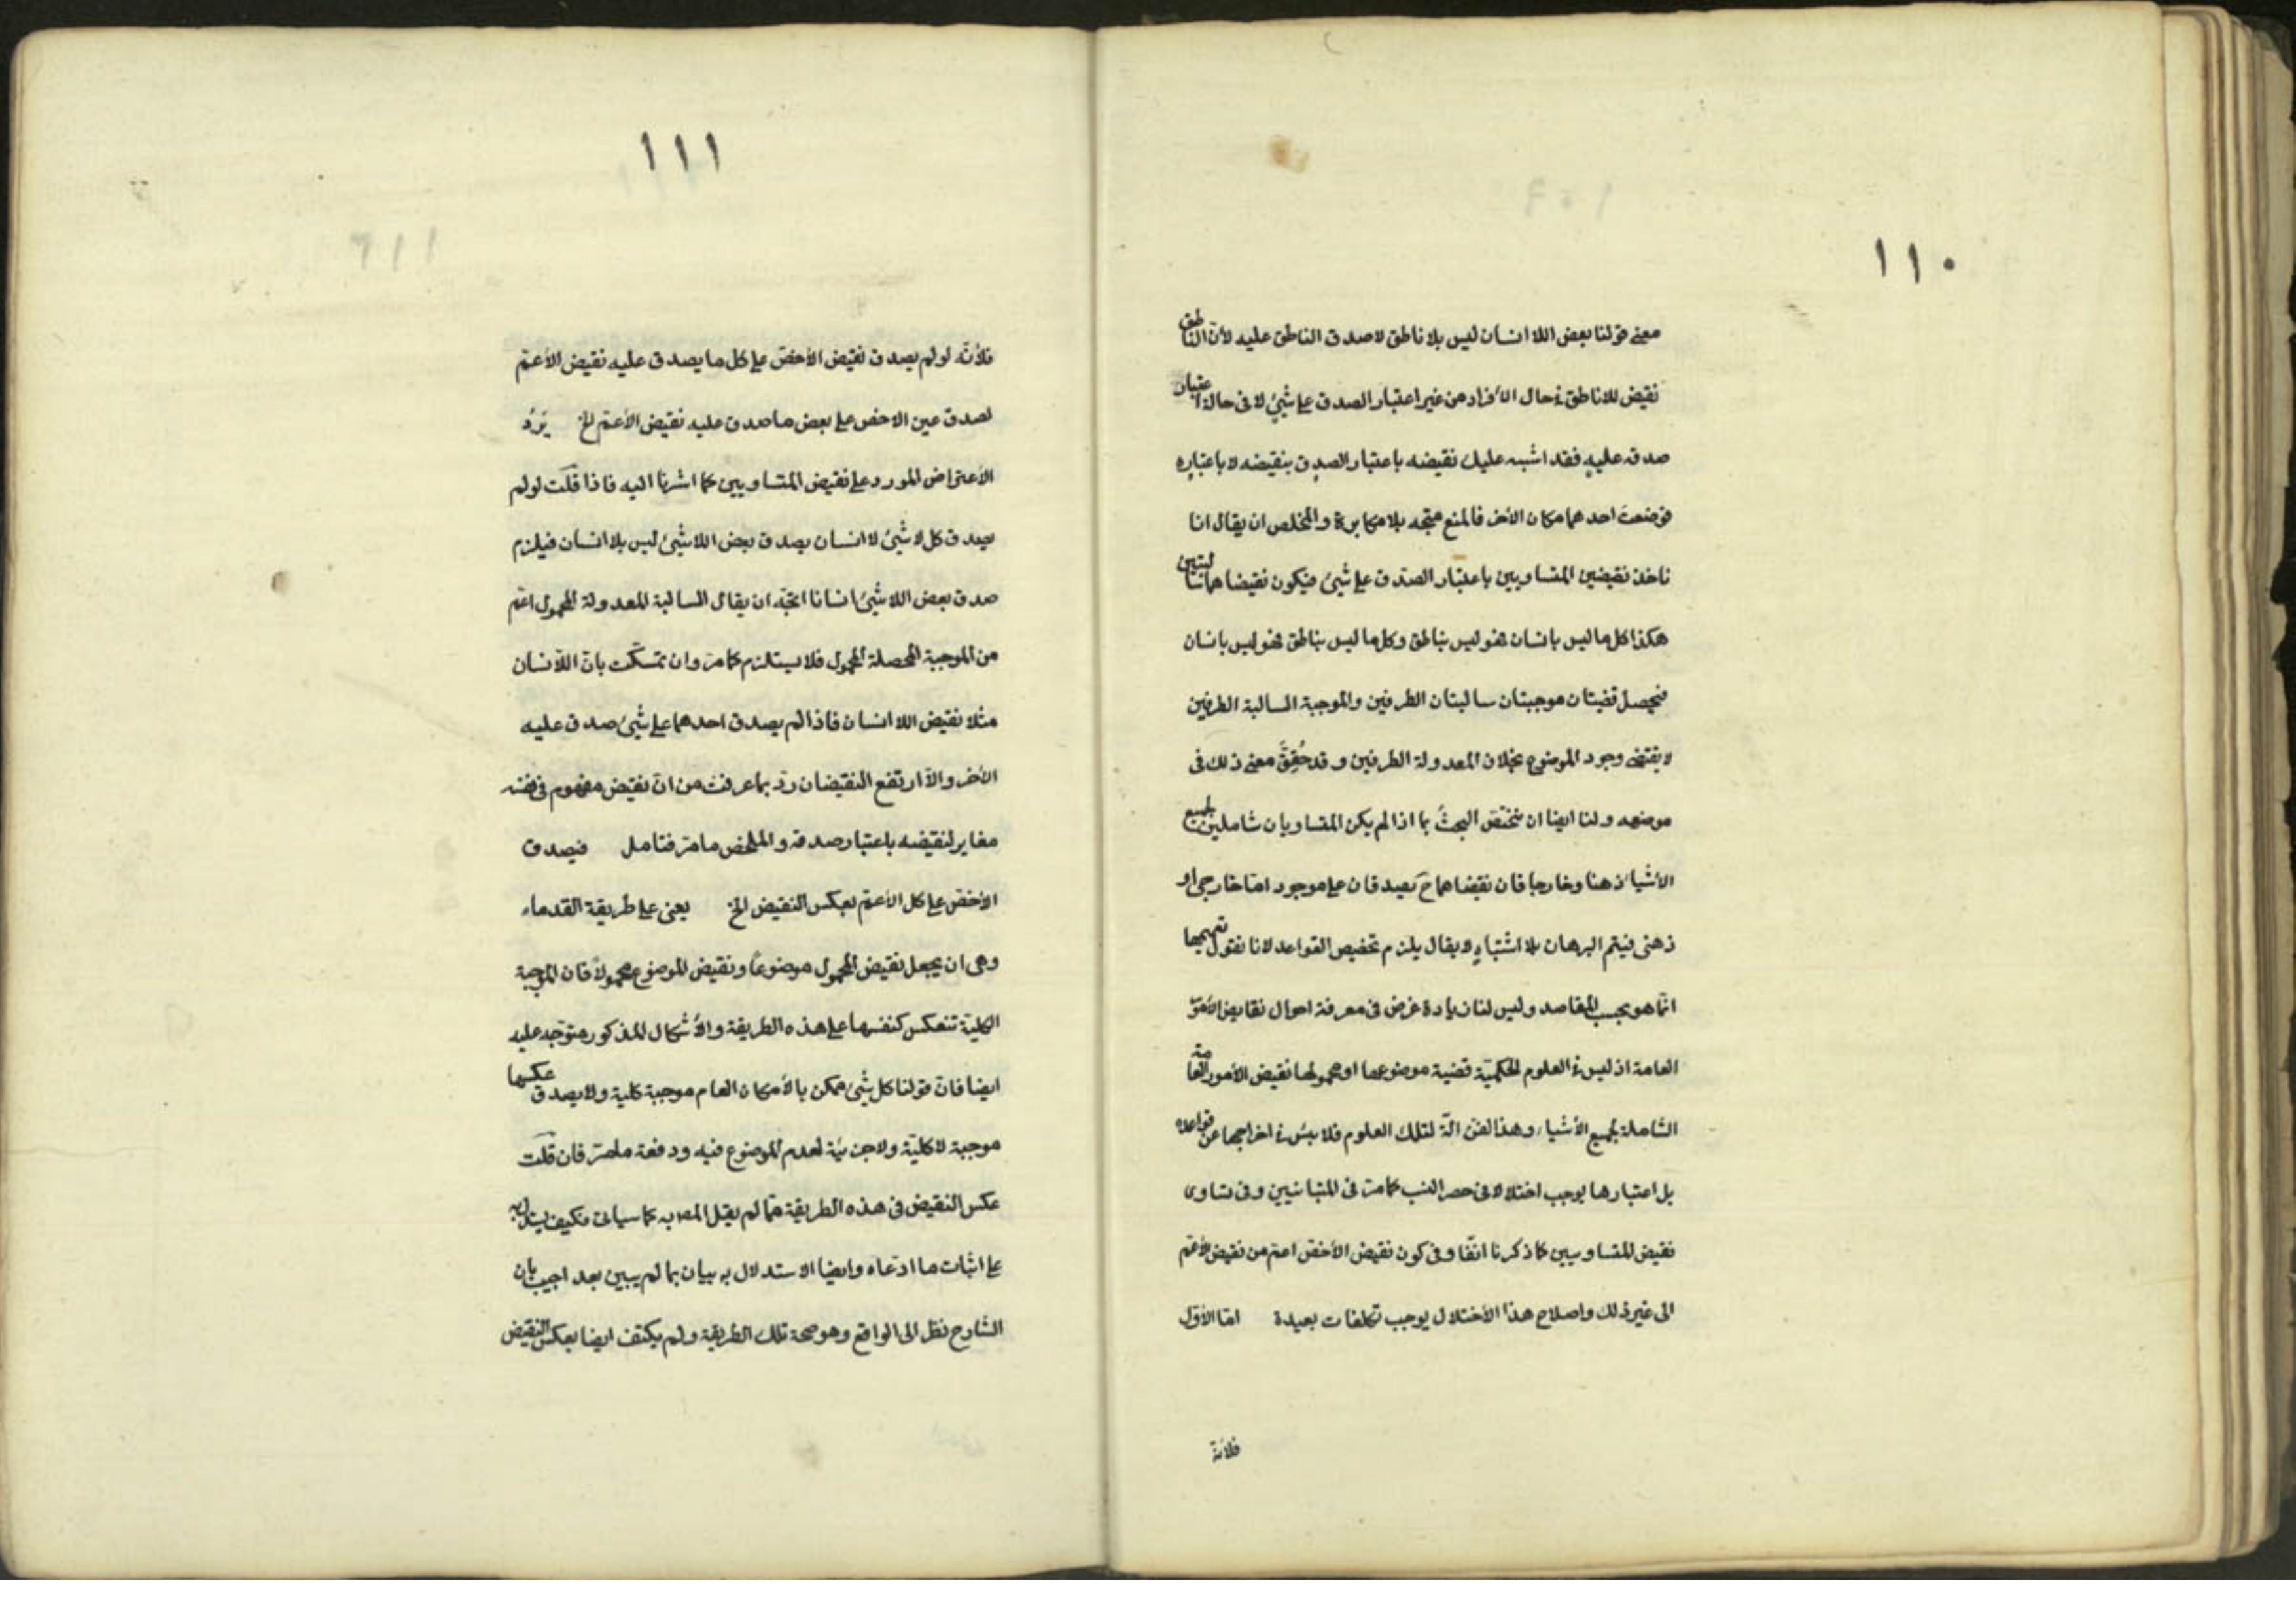 ١١٠
معنى قولنا بعض اللا انسان ليس بلا ناطق لا صدق الناطق عليه لأن الناطق
نقيض للاناطق في حال الأفراد من غير اعتبار الصدق على شيئ لا فى حالة اعتبار
صدقه عليه فقد اشبه عليك نقيضه باعتبار الصدق بنقيضه لا باعتباره
فوضعت احدهما مكان الأخر فالمنع متجه بلا مكابرة والمخلص ان يقال انا
ناخذ نقيضين المتساويين باعتبار الصدق على شيئ فيكون نقيضاهما سالبتين
هكذا كل ما ليس بانسان فهو ليس بناطق وكل ما ليس بناطق فهو ليس بانسان
فيحصل قضيتان موجبتان سالبتان الطرفين والموجبة السالبة الطرفين
لا يقتضى وجود الموضوع بخلاف المعدولة الطرفين وقد حُقِقَ معنى ذلك فى
موضعه ولنا ايضا ان نختص البحثُ بما اذا لم يكن المتساويان شاملين لجميع
الأشياء ذهنا وخارجا فان نقيضاهما ح يصدقان على موجود اما خارجى او
ذهنى فيتم البرهان بلا اشتباهٍ لا يقال يلزم تخصيص القواعد لانا نقول تعميمها
انما هو بحسب المقاصد وليس لنا زيادة غرض فى معرفة احوال نقايض الأمور
العامة اذ ليس في العلوم الحكميّة قضية موضوعها او محمولها نقيض الأمور العامة
الشاملة لجميع الأشياء وهذا الفن الّة لتلك العلوم فلا بئس في اخراجها عن قواعده
بل اعتبارها يوجب اختلالا فى حصر النسب كما مر فى المتبانيين وفى تساوى
نقيض المتساويين كما ذكرنا انفا وفى كون نقيض الأخصّ اعم من نقيض الأعم
الى غير ذلك واصلاح هذا الأختلال يوجب تكلفات بعيدة امّا الأوّل
فلأنه
١١١
فلأنّه لو لم يصدق نقيض الأخصّ على كل ما يصدق عليه نقيض الأعمّ
لصدق عين الاخص على بعض ما صدق عليه نقيض الأعمّ الخ يَرُدُ
الأعتراض المورد على نقيض المتساويين كما اشرنا اليه فاذا قلت لو لم
يصدق كل لا شيئ لا انسان يصدق بعض اللا شيئ ليس بلا انسان فيلزم
صدق بعض اللا شيئ انسانا اتجه ان يقال السالبة المعدولة المحمول اعم
من الموجبة المحصلة المحمول فلا يستلزم كما مرّ وان تمسّكت بان اللانسان
مثلا نقيض اللا انسان فاذا لم يصدق احدهما على شيئ صدق عليه
الأخر والاّ ارتفع النقيضان ردّ بما عرفت من ان نقيض مفهوم فى نفسه
مغاير لنقيضه باعتبار صدقه والملخص ما مرّ فتامل فيصدق
الأخصّ على كل الأعمّ بعكس النقيض الخ يعنى على طريقة القدماء
وهى ان يجعل نقيض المحمول موضوعًا ونقيض الموضوع محمولا فان الموجبة
الكلية تنعكس كنفسها على هذه الطريقة والأشكال المذكور متوجّه عليه
ايضا فان قولنا كل شيئ ممكن بالأمكان العام موجبة كلية ولا يصدق عكسها
موجبة لا كليّة ولا جزئية لعدم الموضوع فيه ودفعه ما مرّ فان قلت
عكس النقيض فى هذه الطريقة مما لم يقل المص به كما سياتى فكيف يستدل به
على اثبات ما ادعاه وايضا الاستدلال به بيان بما لم يبين بعد اجيب بان
الشارح نظر الى الواقع وهو صحة تلك الطريقة ولم يكتف ايضا بعكس النقيض